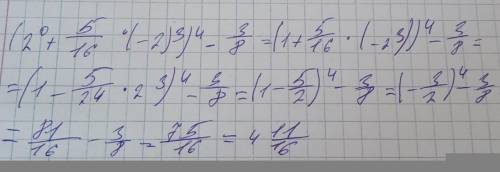 (2⁰ + 5/16 · (-2)³)⁴ - 3/8 = (1 + 5/16 · (-2³))⁴ - 3/8 =
= (1 - 5/24 · 2³)⁴ - 3/8 = (1 - 5/2)⁴ - 3/8 = (-3/2)⁴ - 3/8
= 81/16 - 3/8 = 75/16 = 4 11/16